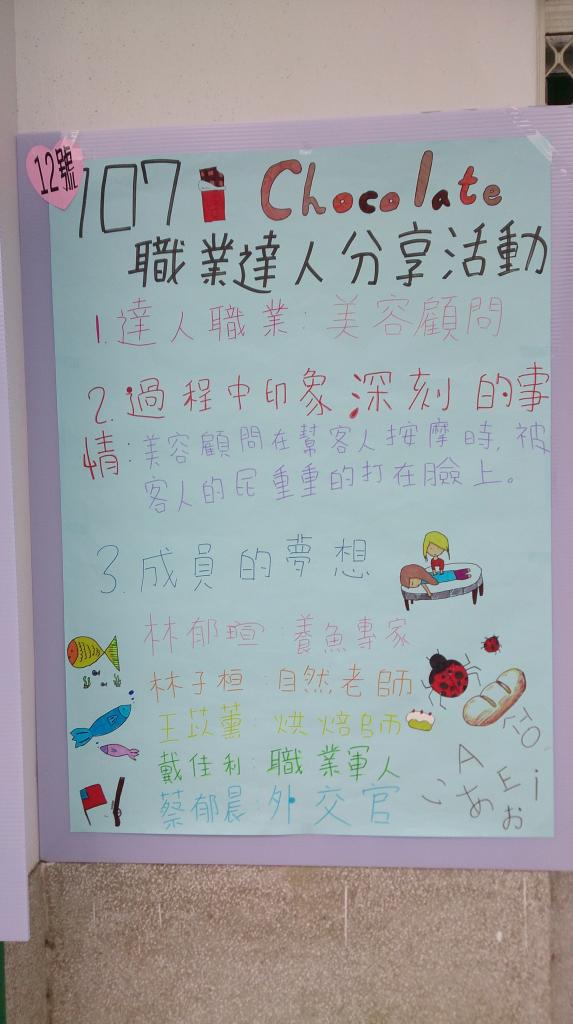 12號
107 Chocolate
職業達人分享活動
1.達人職業:美容顧問
2.過程中印象深刻的事
情:美容顧問在幫客人按摩時,被
客人的屁重重的打在臉上。
3.成員的夢想
林郁瑄:養魚專家
林子桓:自然老師
王苡薰:烘焙師
戴佳利:職業軍人
蔡郁晨:外交官
A E i
こ あ お